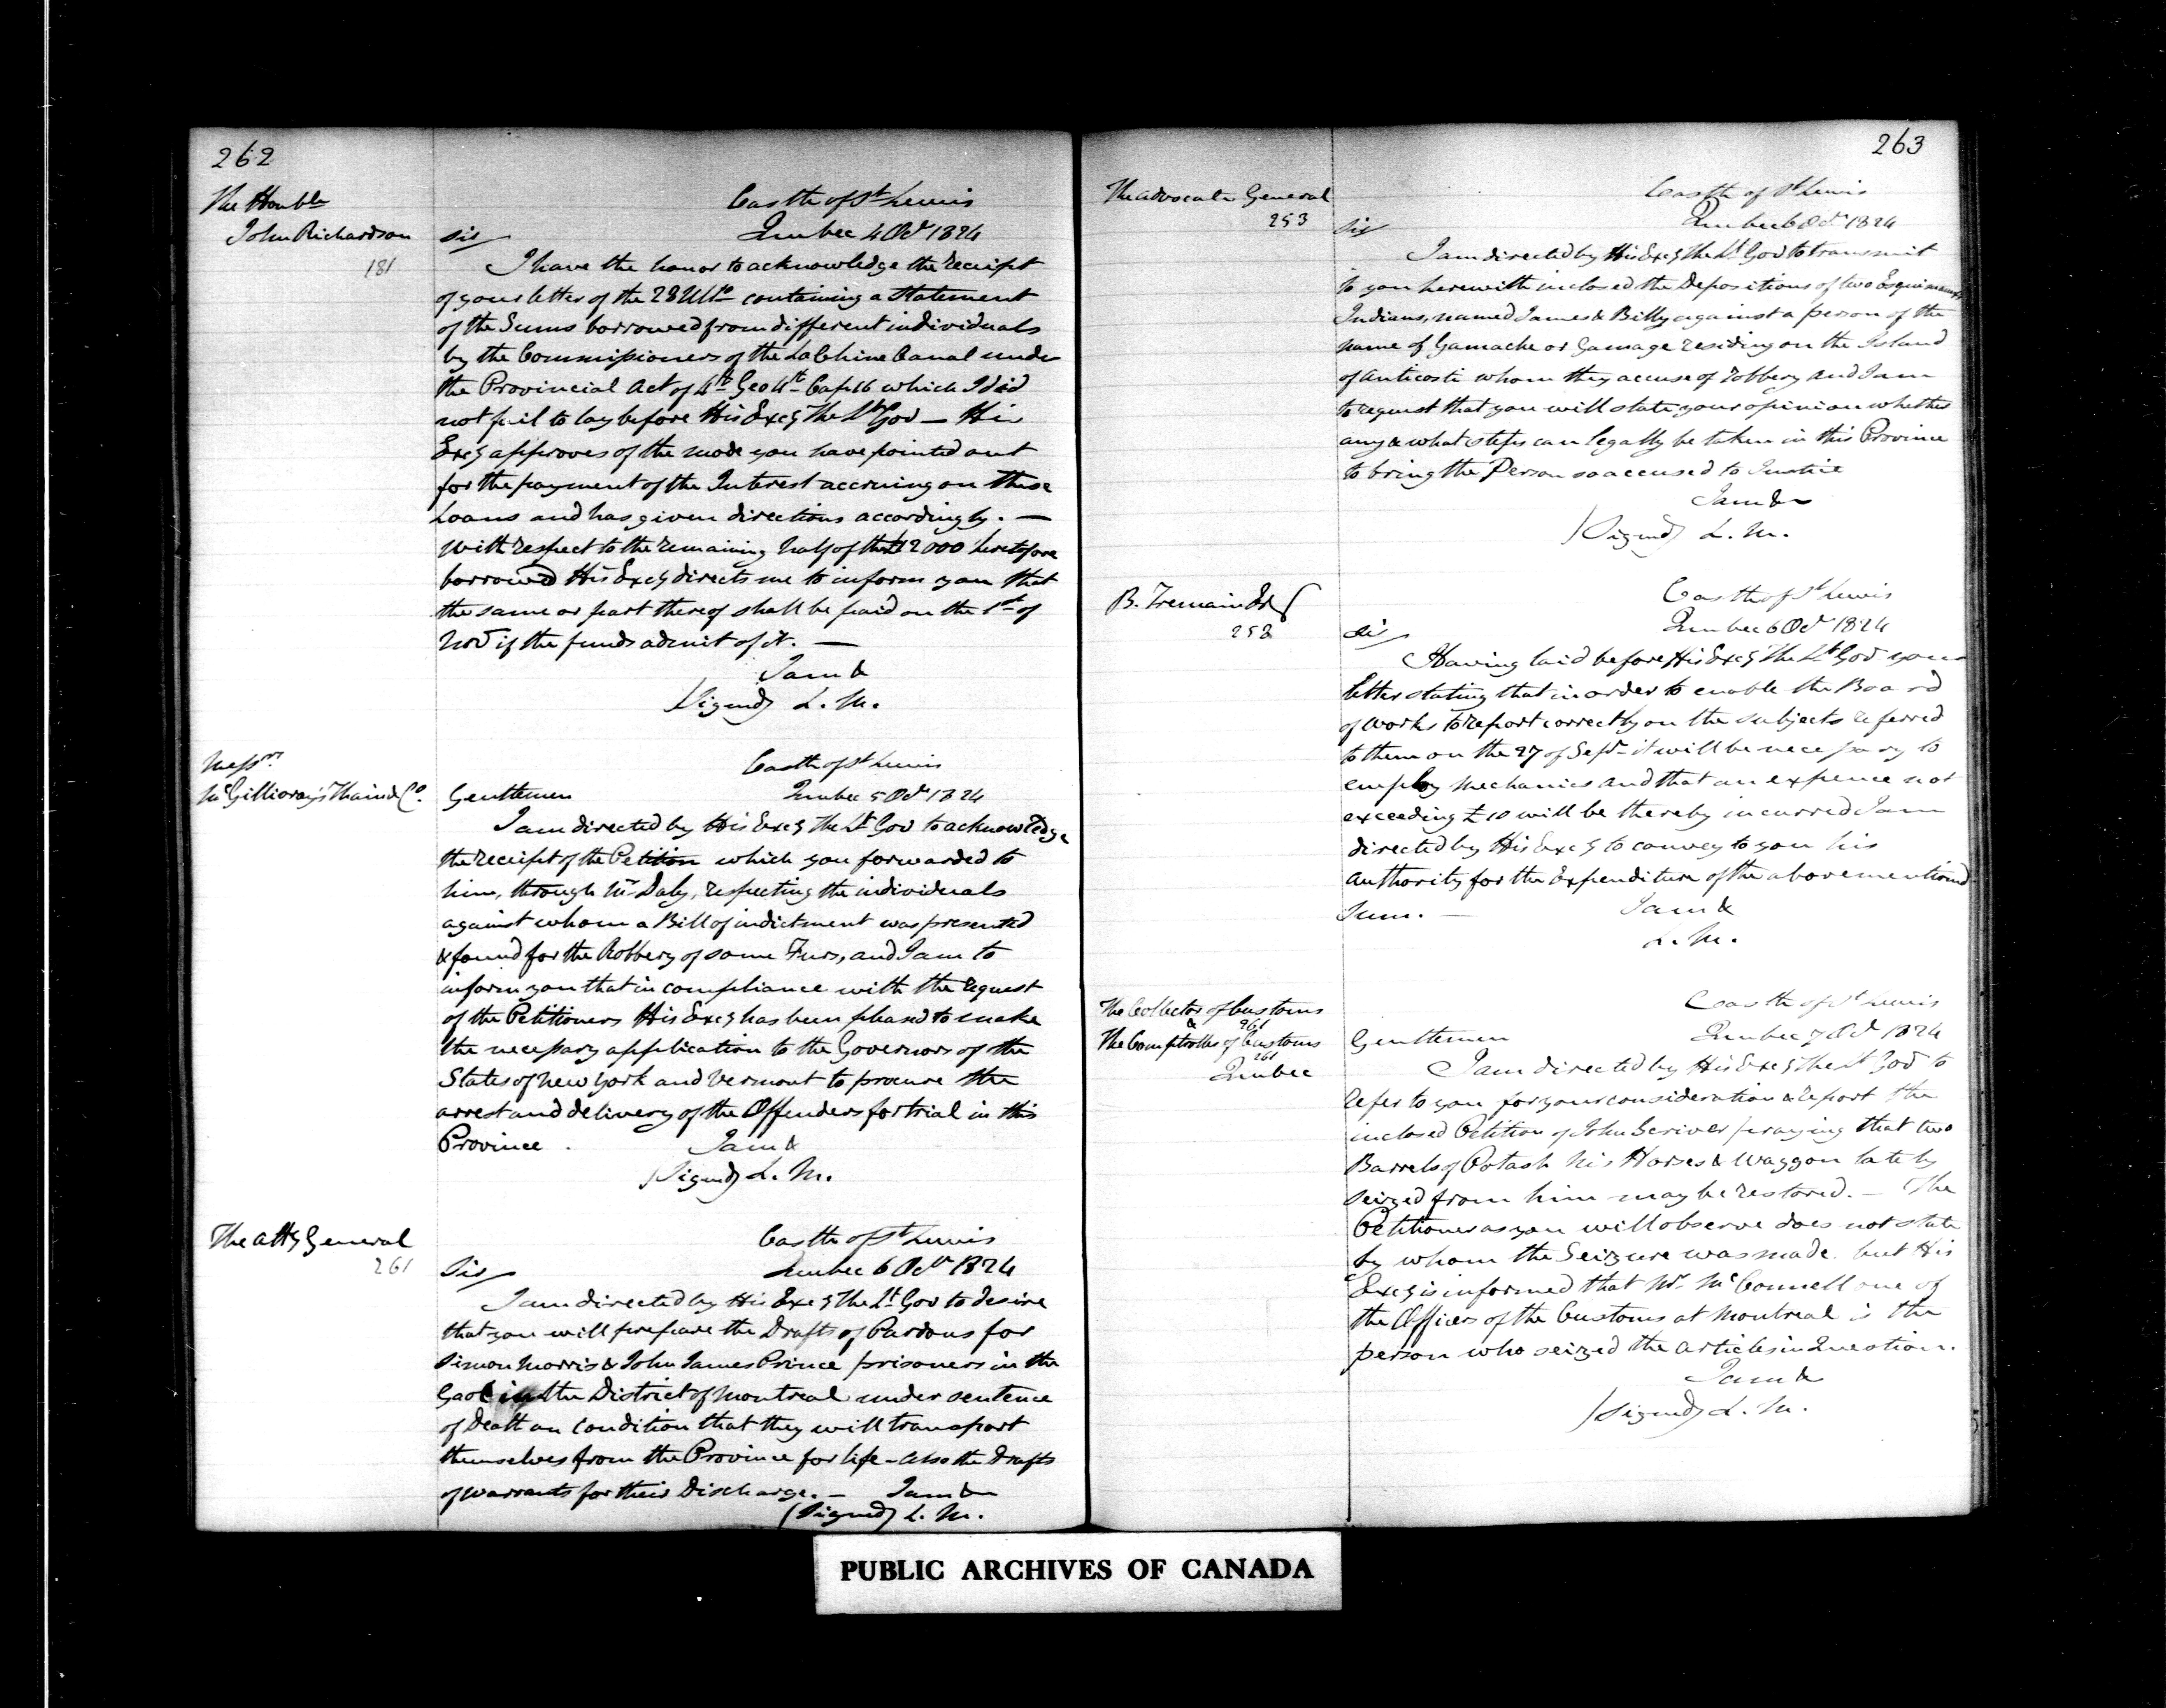 262
The Honble
John Richardson
181
Castle of St Lewis
Sir Quebec 4 Octr 1824
I have the honor to acknowledge the receipt
of your letter of the 28 Ulto containing a Statement
of the Sums borrowed from different individuals
by the Commissioners of the La Chine Canal under
the Provincial Act of 4th Geo 4th Cap 16 which I did
not fail to lay before His Excy The Lt Gov — His
Excy approves of the mode you have pointed out
for the payment of the Interest accruing on these
Loans and has given directions accordingly. —
With respect to the remaining half of the £12000 heretofore
borrowed His Excy directs me to inform you that
the same or part thereof shall be paid on the 1st of
Novr if the funds admit of it. —
I am &
(Signed) L. M.
Messrs
McGillivrays Thain & Co.
Castle of St Lewis
Gentlemen Quebec 5 Octr 1824
I am directed by His Excy The Lt Gov to acknowledge
the receipt of the Petition which you forwarded to
him, through Mr Daly, respecting the individuals
against whom a Bill of indictment was presented
& found for the Robbery of some Furs, and I am to
inform you that in compliance with the request
of the Petitioners His Excy has been pleased to make
the necessary application to the Governors of the
States of New York and Vermont to procure the
arrest and delivery of the Offenders for trial in this
Province .
I am &
(Signed) L. M.
The Atty General
261
Castle of St Lewis
Sir Quebec 6 Octr 1824
I am directed by His Excy The Lt Gov to desire
that you will prepare the Drafts of Pardons for
Simon Morris & John James Prince prisoners in the
Gaol in the District of Montreal under sentence
of Death on condition that they will transport
themselves from the Province for life – also the Drafts
of warrants for their Discharge. — I am &c
(Signed) L. M.
263
The Advocate General
253
Castle of St Lewis
Sir Quebec 6 Octr 1824
I am directed by His Excy The Lt Gov to transmit
to you herewith inclosed the Depositions of two Esquimaux
Indians, named James & Billy against a person of the
name of Gamache or Gamage residing on the Island
of Anticosti whom they accuse of robbery and I am
to request that you will state your opinion whether
any & what steps can legally be taken in this Province
to bring the Person so accused to Justice
I am &c
(Signed) L. M.
B. Tremain Esq
252
Castle of St Lewis
Sir Quebec 6 Octr 1824
Having laid before His Excy The Lt Gov your
letter stating that in order to enable the Board
of Works to report correctly on the subjects referred
to them on the 27 of Septr it will be necessary to
employ mechanics and that an expence not
exceeding £10 will be thereby incurred I am
directed by His Excy to convey to you his
authority for the Expenditure of the abovementioned
Sum. —
I am &
L. M.
The Collector of Customs
& 261
The Comptroller of Customs
261
Quebec
Castle of St Lewis
Gentlemen Quebec 7 Octr 1824
I am directed by His Excy The Lt Gov to
refer to you for your consideration & report the
inclosed Petition of John Scriver praying that two
Barrels of Potash his Horses & Waggon lately
seized from him may be restored. — The
Petitioner as you will observe does not state
by whom the Seizure was made but His
Excy is informed that Mr McConnell one of
the Officers of the Customs at Montreal is the
person who seized the articles in Question.
I am &
(Signed) L. M.
PUBLIC ARCHIVES OF CANADA